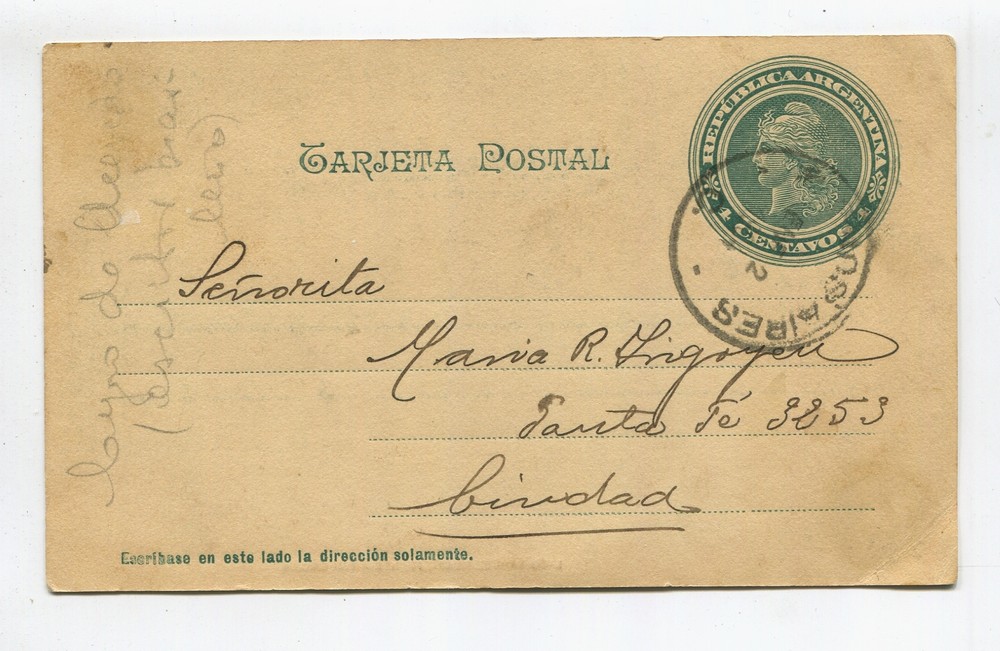 TARJETA POSTAL
REPÚBLICA ARGENTINA
4 CENTAVOS 4
AIRES
2
Señorita
Maria R. Irigoyen
Santa Fé 3253
Ciudad
Escríbase en este lado la dirección solamente.
de
(escritor